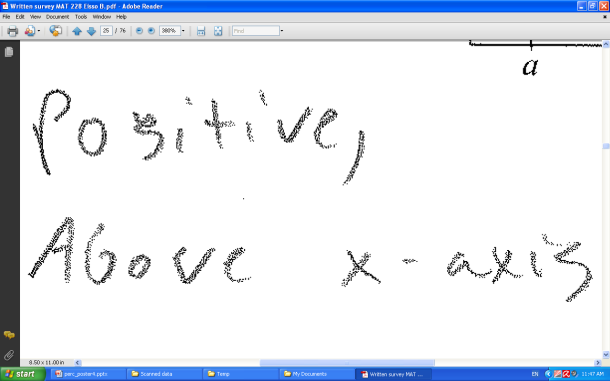 Written survey MAT 228 Elsso B.pdf - Adobe Reader
File Edit View Document Tools Window Help
25 / 76 300% Find
a
Positive,
Above x-axis
8.50 x 11.00 in
start perc_poster4.pptx Scanned data Temp My Documents Written survey MAT ... EN 11:47 AM